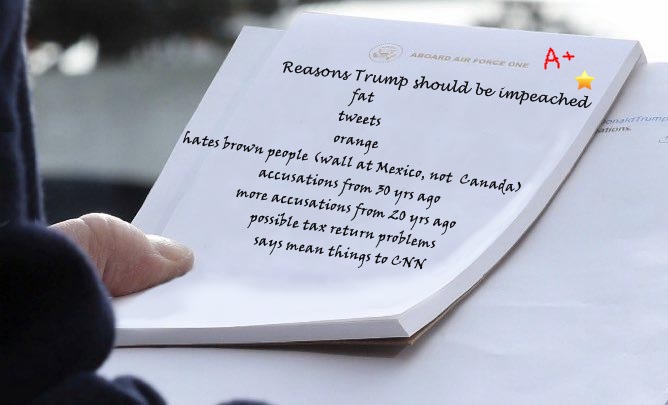 ABOARD AIR FORCE ONE
A+
Reasons Trump should be impeached
fat
tweets
orange
hates brown people (wall at Mexico, not Canada)
accusations from 30 yrs ago
more accusations from 20 yrs ago
possible tax return problems
says mean things to CNN
DonaldTrump
ations.